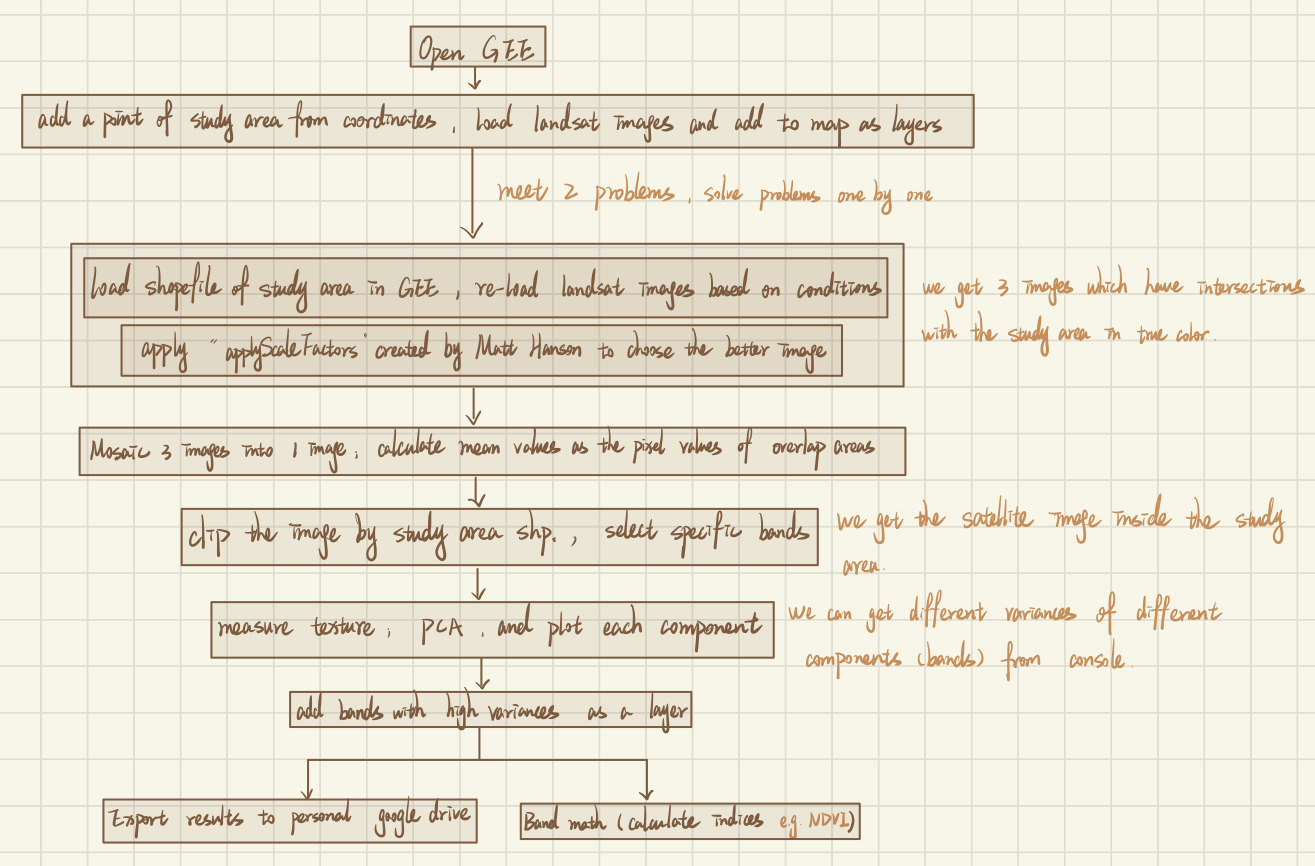 Open GEE
add a point of study area from coordinates, load landsat images and add to map as layers
meet 2 problems, solve problems one by one
load shapefile of study area in GEE, re-load landsat images based on conditions
we get 3 images which have intersections
with the study area in true color.
apply "applyScaleFactors" created by Matt Hanson to choose the better image
Mosaic 3 images into 1 image, calculate mean values as the pixel values of overlap areas
clip the image by study area shp., select specific bands
we get the satellite image inside the study
area.
measure texture, PCA, and plot each component
we can get different variances of different
components (bands) from console.
add bands with high variances as a layer
Export results to personal google drive
Band math (calculate indices e.g. NDVI)